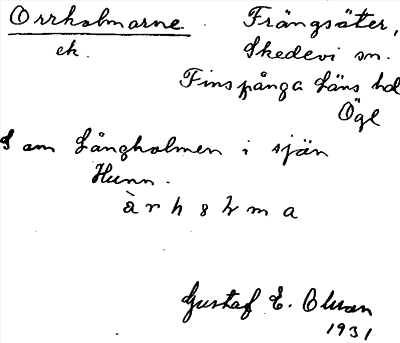 Orrholmarne. Frängsäter,
ek. Skedevi sn.
Finspånga Läns hd
Ögl
S om Långholmen i sjön
Hunn.
à r h o l m a
Gustaf E. Olsson
1931